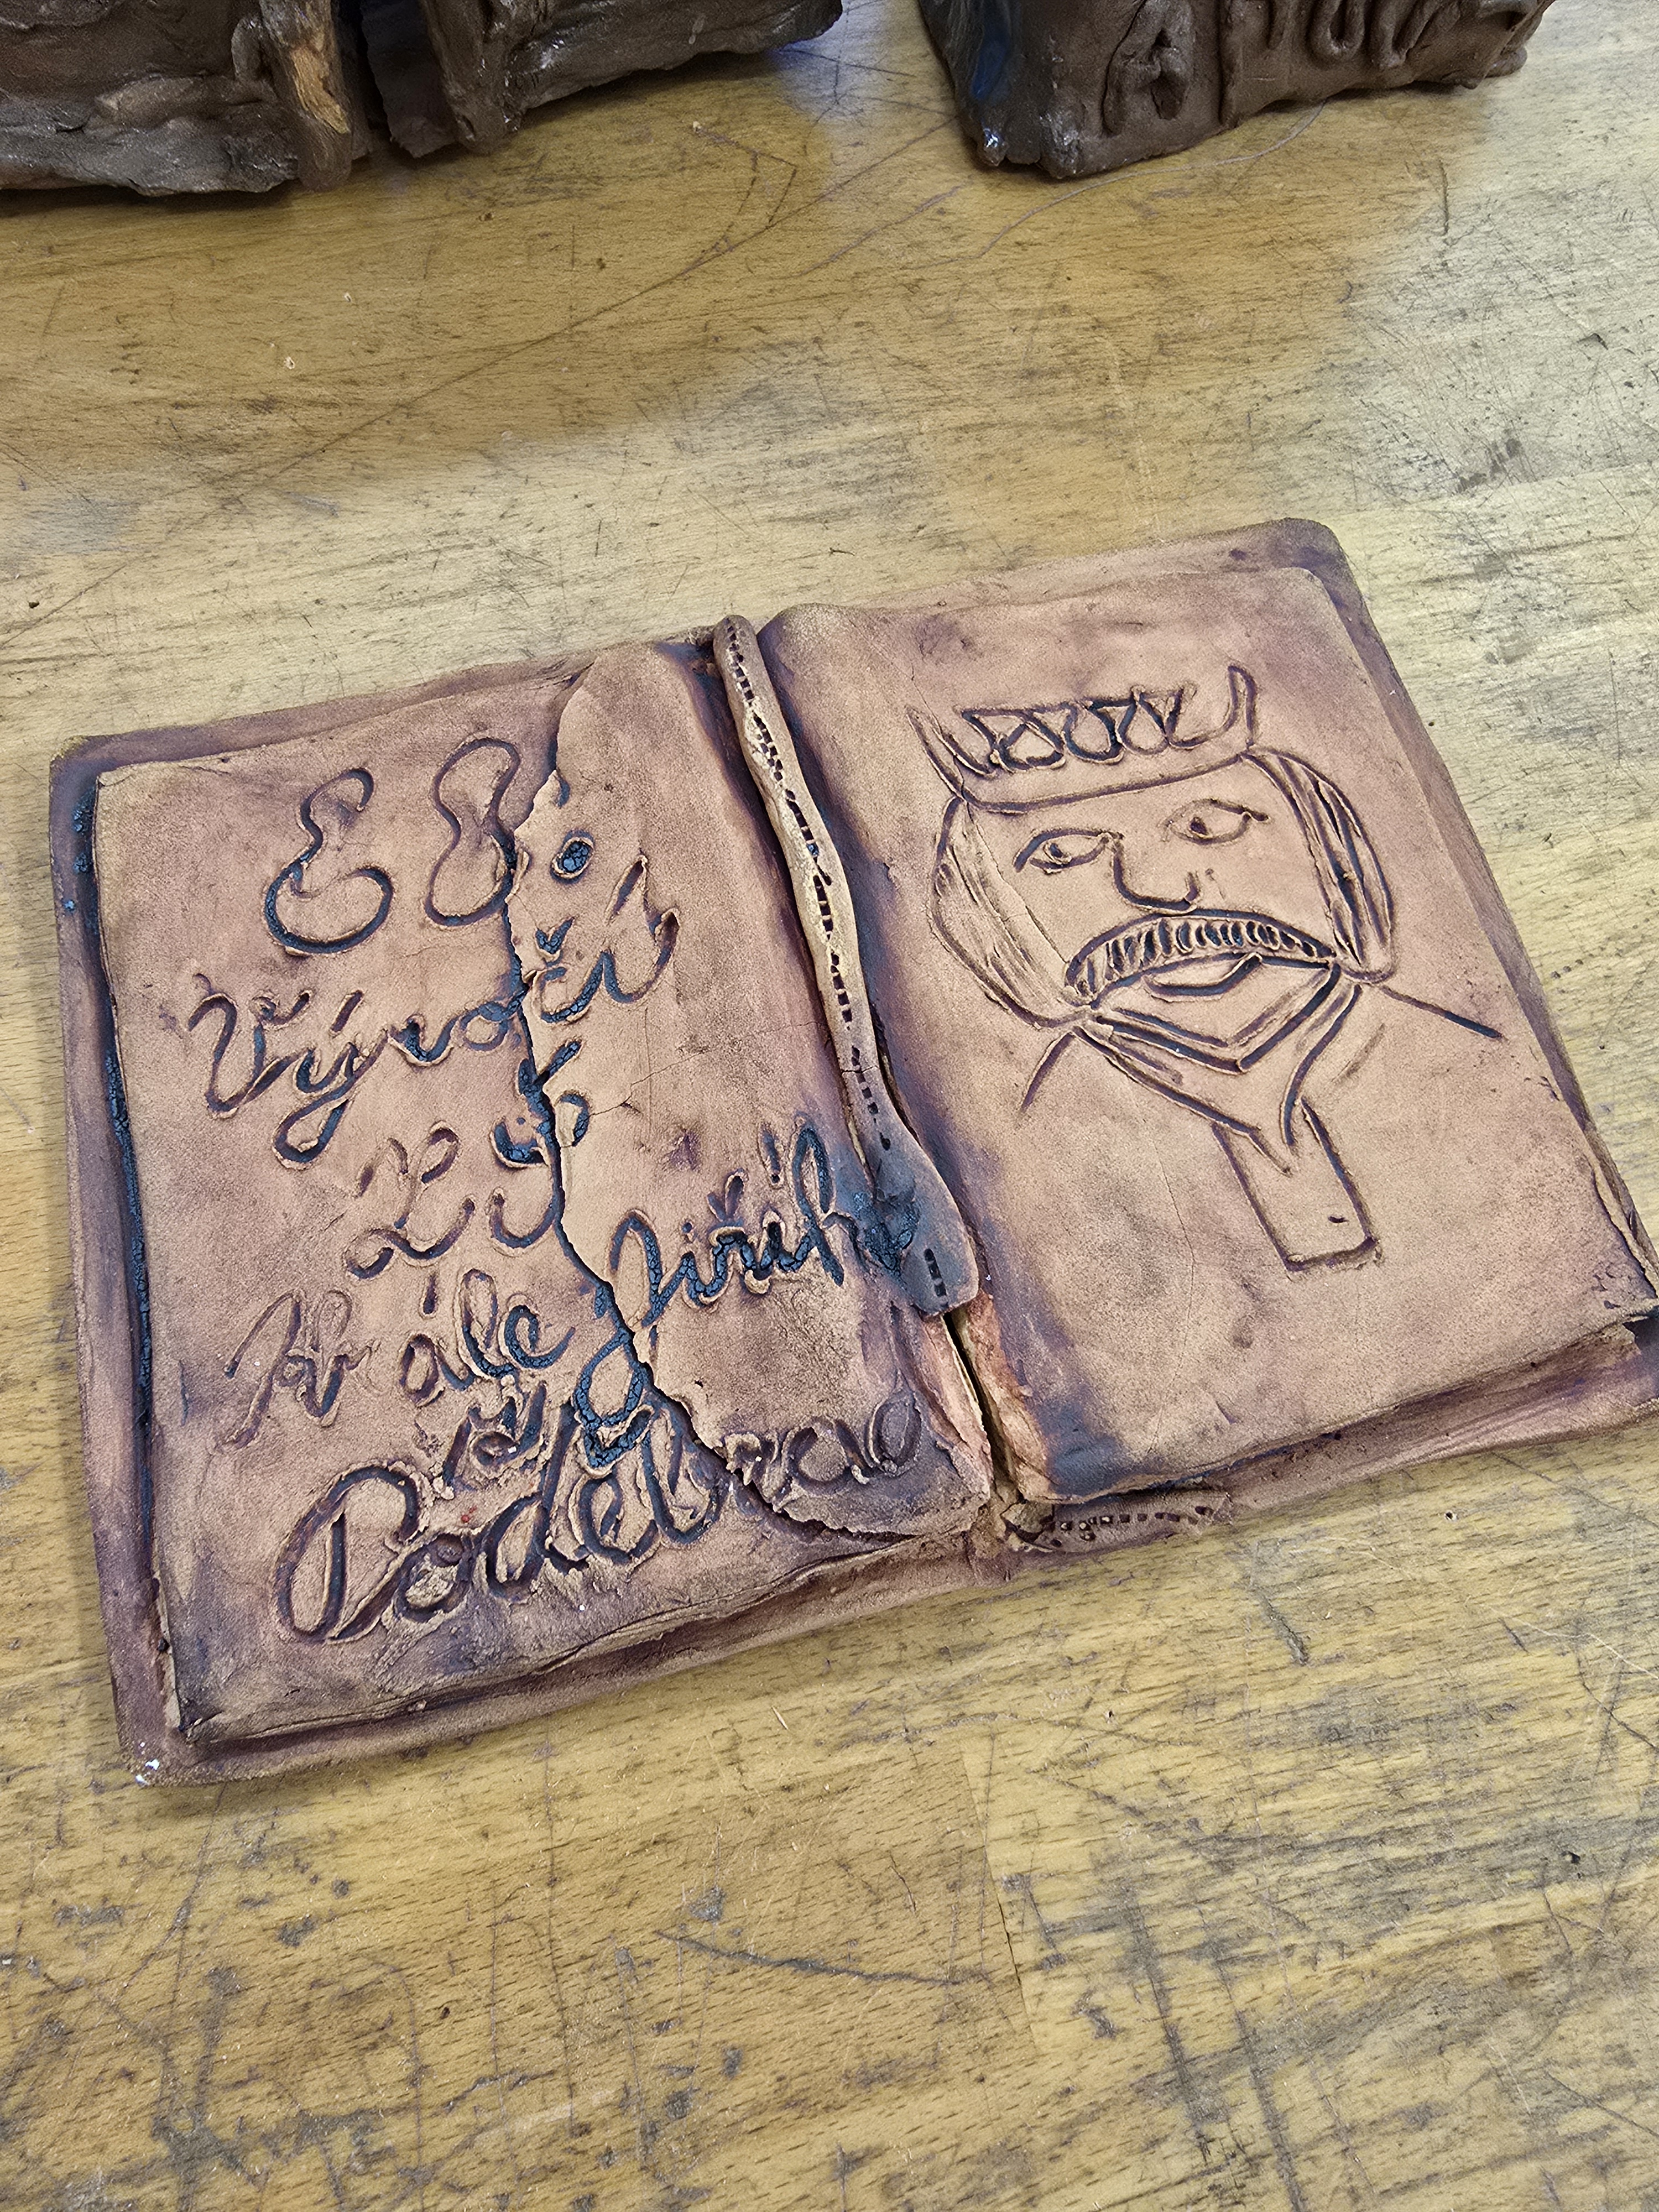 88.
Výročí
ZŠ
Krále Jiřího
z
Poděbrad